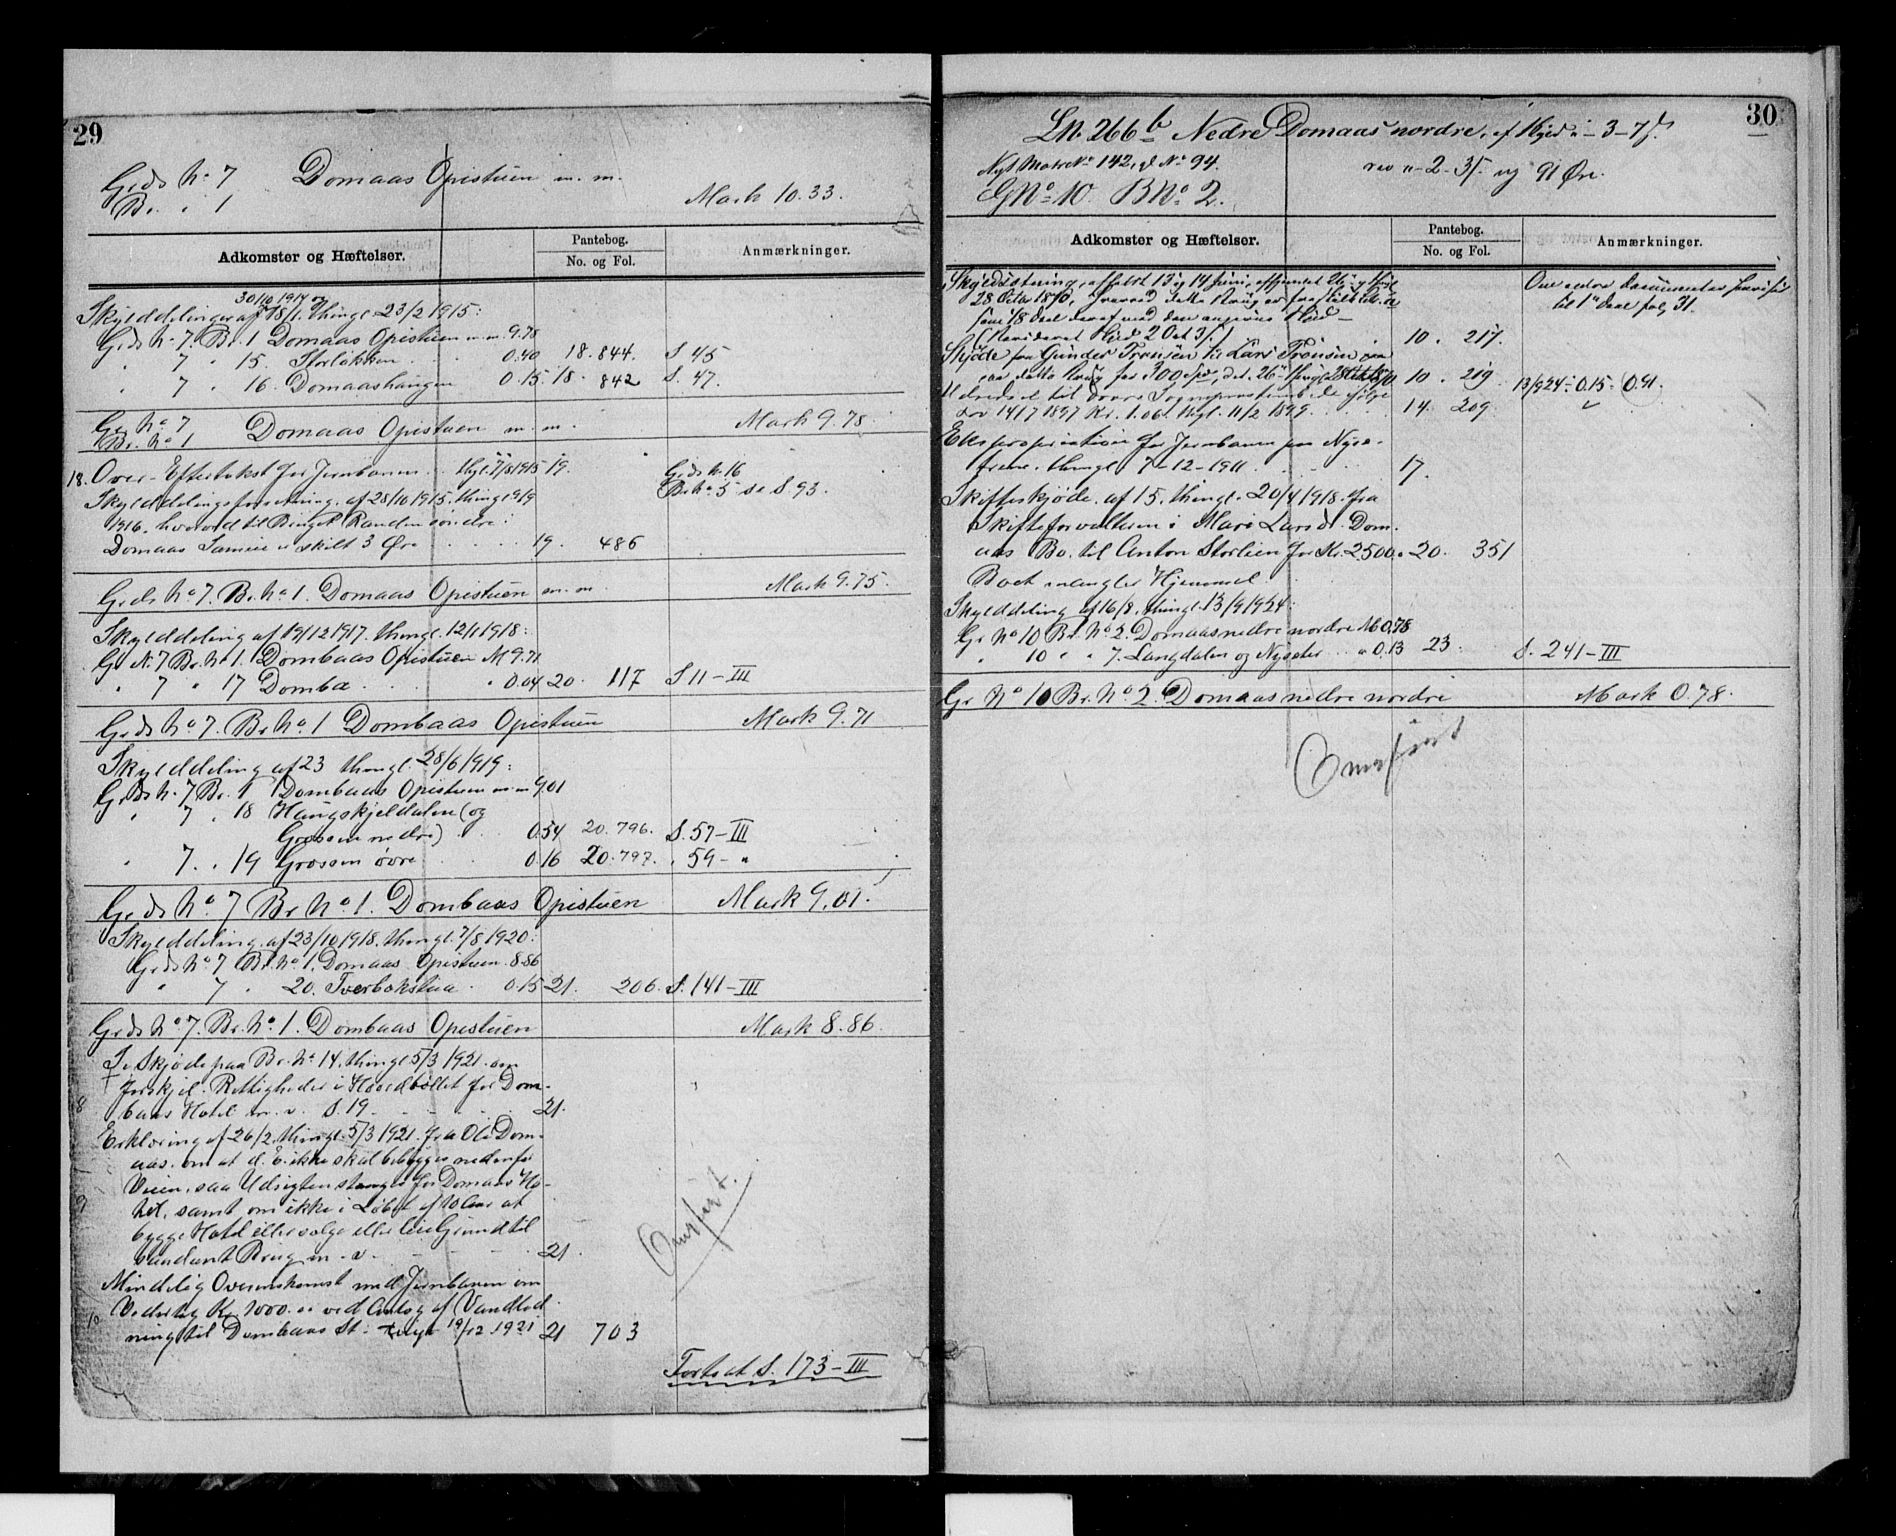 29
Grds No 7 Domaas Opistuen m. m.
Br. " 1
Mark 10.33.
Adkomster og Hæftelser.
Pantebog.
No. og Fol.
Anmærkninger.
30/10 1914 og
Skylddelinger af 18/1. thingl. 23/2 1915:
Grds No 7. Br. 1 Domaas Opistuen m. m. 9.78
" 7 " 15. Storløkken . 0.40 18. 844. S. 45
" 7 " 16. Domaashaugen 0.15 18. 842 S. 47.
Grds No 7
Br. No 1 Domaas Opistuen m. m. Mark 9.78
18. Over-Eftertakst for Jernbanen . thgl. 7/8 1915 19. Grds No 16
Br No 5 se S. 93.
Skylddelingsforretning af 28/10 1915, thingl. 9/9
1916, hvorved til Bruget Randen søndre i
Domaas Sameie er skilt 3 Øre . . . 19. 486
Grds No 7. Br. No 1. Domaas Opistuen m. m. Mark 9.75.
Skylddeling af 19/12 1917. thingl. 12/1 1918:
Gr N. 7 Br. No 1. Dombaas Opistuen M 9.71
" 7 " 17 Domba . . . " 0.04 20. 117 S 11-III
Grds No 7. Br No 1 Dombaas Opistuen Mark 9.71
Skylddeling af 23 thingl. 28/6 1919:
Grds No 7 Br. 1 Dombaas Opistuen m. m 9.01
" 7 " 18 Haugskjeldalen (og
Grossen nedre) . . 0.54 20. 796. S. 57-III
" 7. " 19 Grossen øvre . . 0.16 20. 797. " 59- "
Grds No 7 Br No 1. Dombaas Opistuen Mark 9.01.
Skylddeling af 23/10 1918. thingl. 7/8 1920:
Grds No 7 Br. No 1. Domaas Opistuen. 8.86
" 7 " 20. Tverbakstua . 0.15 21. 206. S. 141-III
Grds No 7. Br. No 1. Dombaas Opistuen Mark 8.86.
Se Skjøde paa Br. No 14, thingl. 5/3 1921. om
forskjel. Rettigheder i Hovedbøllet for Dom-
8 baas Hotel m. v. S. 19 . . . 21.
Erklæring af 26/2, thingl. 5/3 1921. fra Ole Dom-
aas. om at d. E. ikke skal bebygges nedenfor
Veien, saa Udsigten stænges for Domaas Ho-
9 tel, samt om ikke i Løbet af 10 Aar at
bygge Hotel eller sælge eller leie Grund til
saadant Brug m. v. . . . 21.
Omført.
Mindelig Overenskomst med Jernbanen om
Vederlag Kr. 1000.00 ved Anlæg af Vandled
10 ning til Dombaas St. tinglyst 19/12 1921 21 703
Fortsat S. 173-III
30
LN. 266 b Nedre Domaas nordre, af Skyld " - 3 - 7 ß.
Nyt Matr. No 142, L No 94. rev " - 2 - 3 ß. og 91 Øre.
G No 10. B No 2.
Adkomster og Hæftelser.
Pantebog.
No. og Fol.
Anmærkninger.
Skyldsætning, afholdt 13 og 14 Juni,
28 Octbr 1870, hvorved dette Brug er fraskilt
som 1/8 Deel deraf med den angivne Skyld -
(Revideret Skyld 2 Ort 3 ß) . 10. 217.
Om ældre Documenter henvises
til 1ste Deel fol. 31.
Skjøde fra Gunder Tronsen til Lars Tronsen paa
dette Brug for 300 Spd, 10. 219 13/9 24 ÷ 0.15. 0.91.
Udredsel til Dovre Sognepræstembede ifølge
Lov 14/7 1897 Kr. 1.06, thgl. 11/2 1899 . . . 14. 209.
Ekspropriation for Jernbanen paa Nysæ-
trene. thingl. 7-12-1911 . . . 17.
Skifteskjøde. af 15. thingl. 20/4 1918. fra
Skifteforvalteren i Mari Larsd. Dom-
aas Bo. til Anton Storlien for Kr. 2500. 20. 351
Boet mangler Hjemmel
Skylddeling af 16/8, thingl. 13/9 1924:
Gr No 10 Br. No 2. Domaas nedre nordre M. 0.78
" 10 " " 7. Langdalen og Nysæter . . " 0.13 23. S. 241-III
Gr No 10 Br. No 2. Domaas nedre nordre Mark 0.78.
Omført